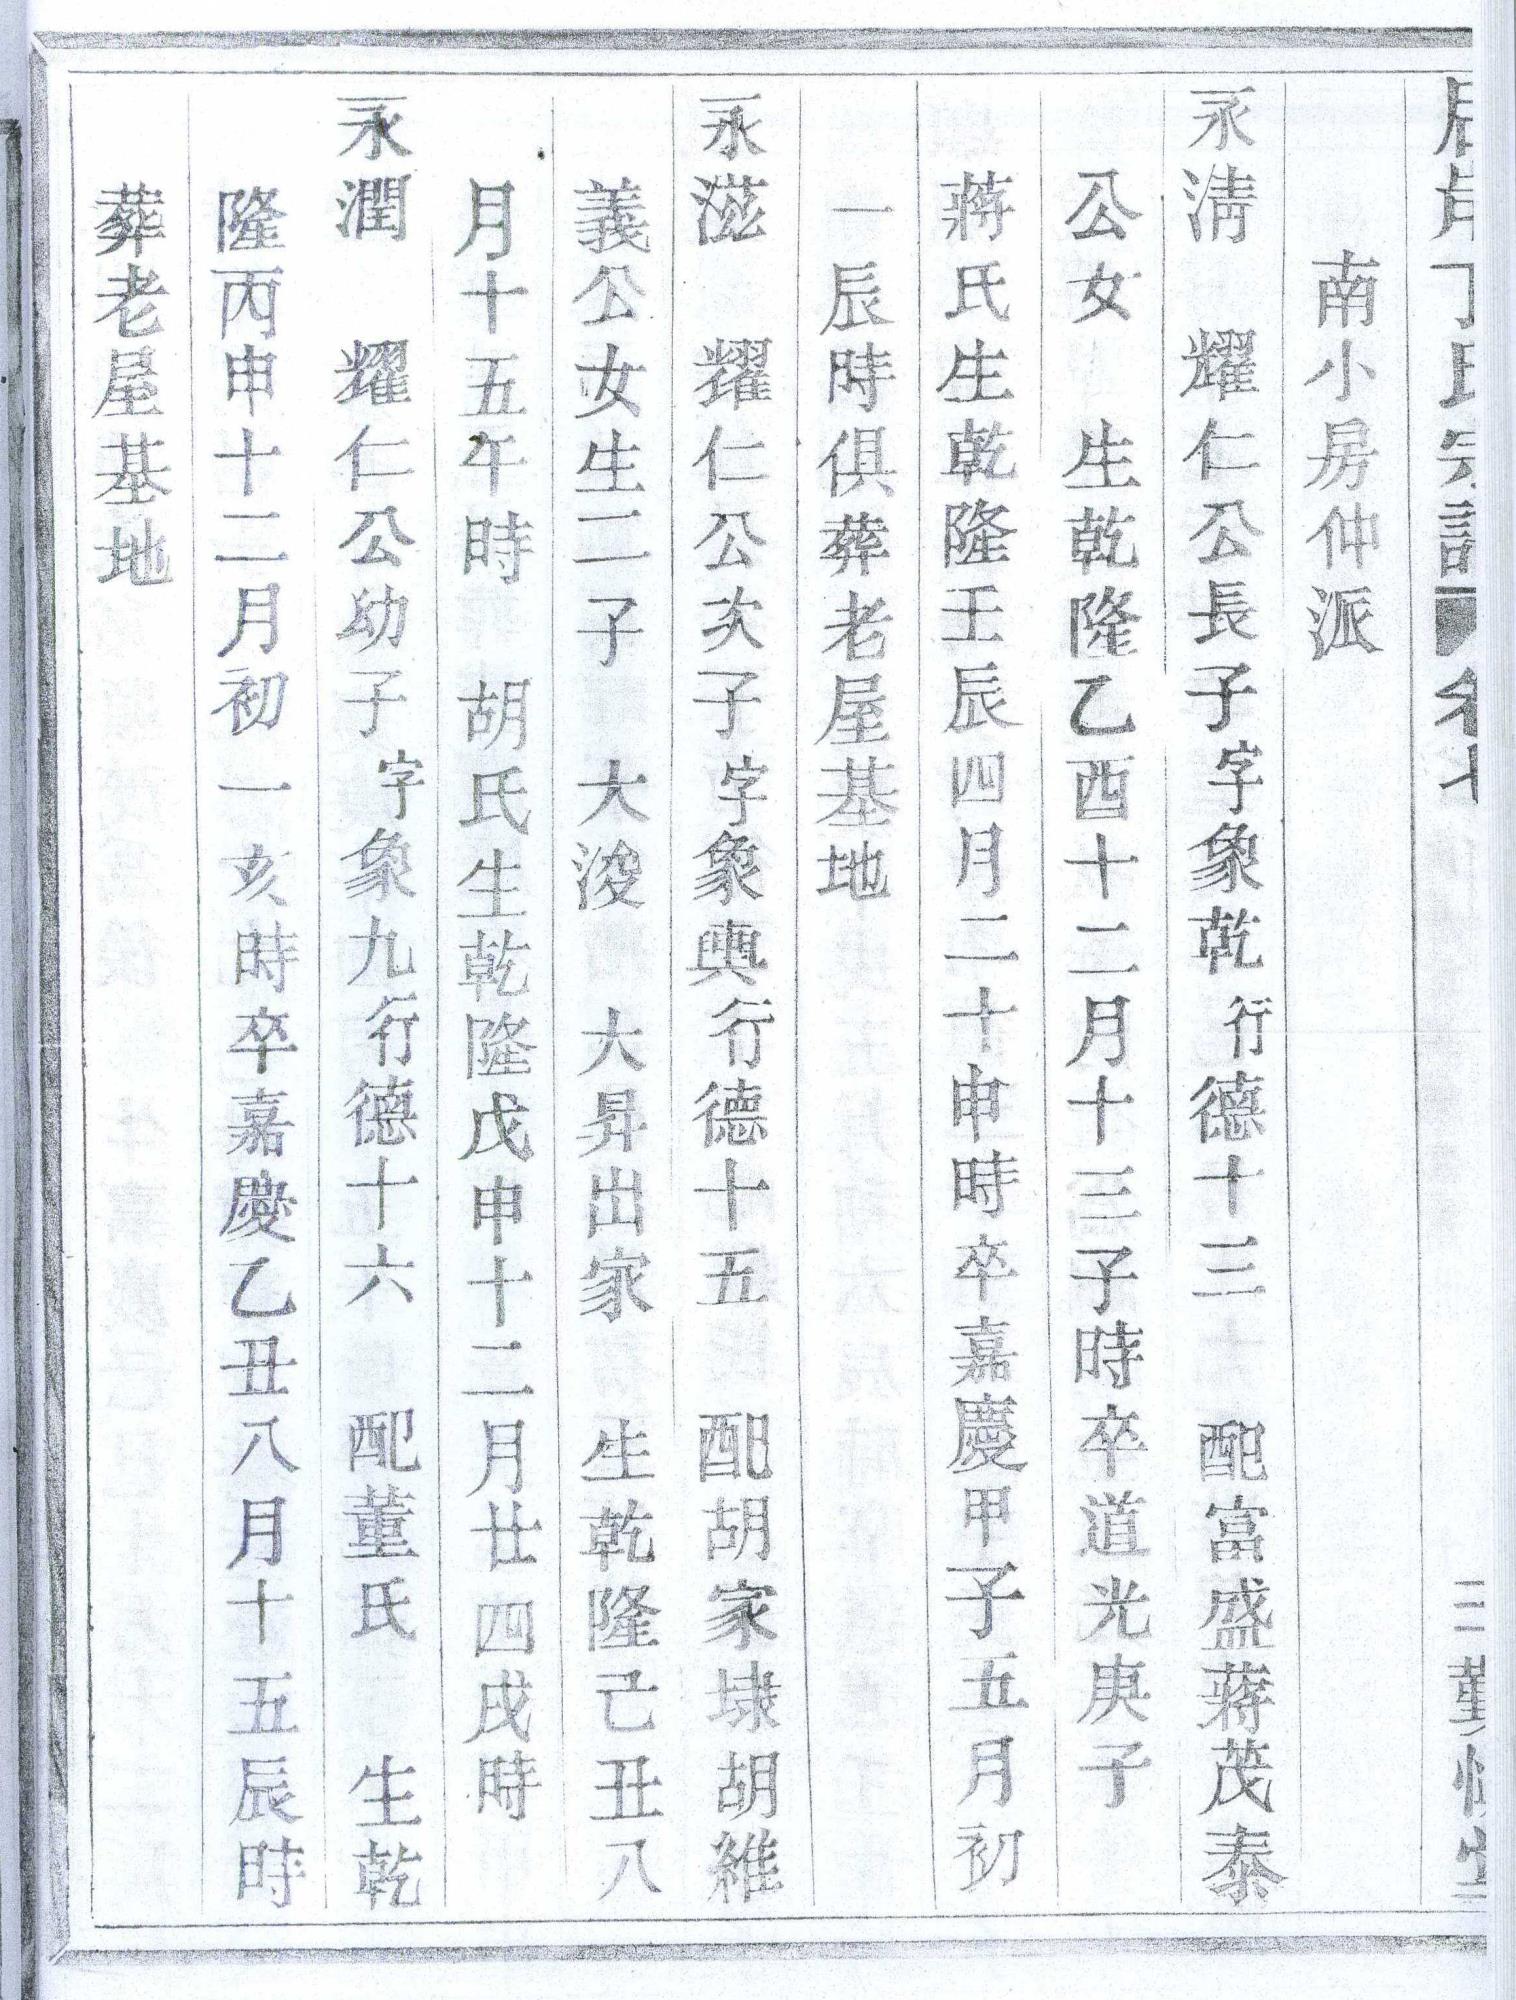 丁氏宗譜 卷七
南小房仲派
永淸 耀仁公長子字象乾行德十三 配富盛蔣茂泰
公女 生乾隆乙酉十二月十三子時卒道光庚子
蔣氏生乾隆壬辰四月二十申時卒嘉慶甲子五月初
一辰時俱葬老屋基地
永滋 耀仁公次子字象輿行德十五 配胡家埭胡維
義公女生二子 大浚 大昇出家 生乾隆己丑八
月十五午時 胡氏生乾隆戊申十二月廿四戌時
永潤 耀仁公幼子字象九行德十六 配董氏 生乾
隆丙申十二月初一亥時卒嘉慶乙丑八月十五辰時
葬老屋基地